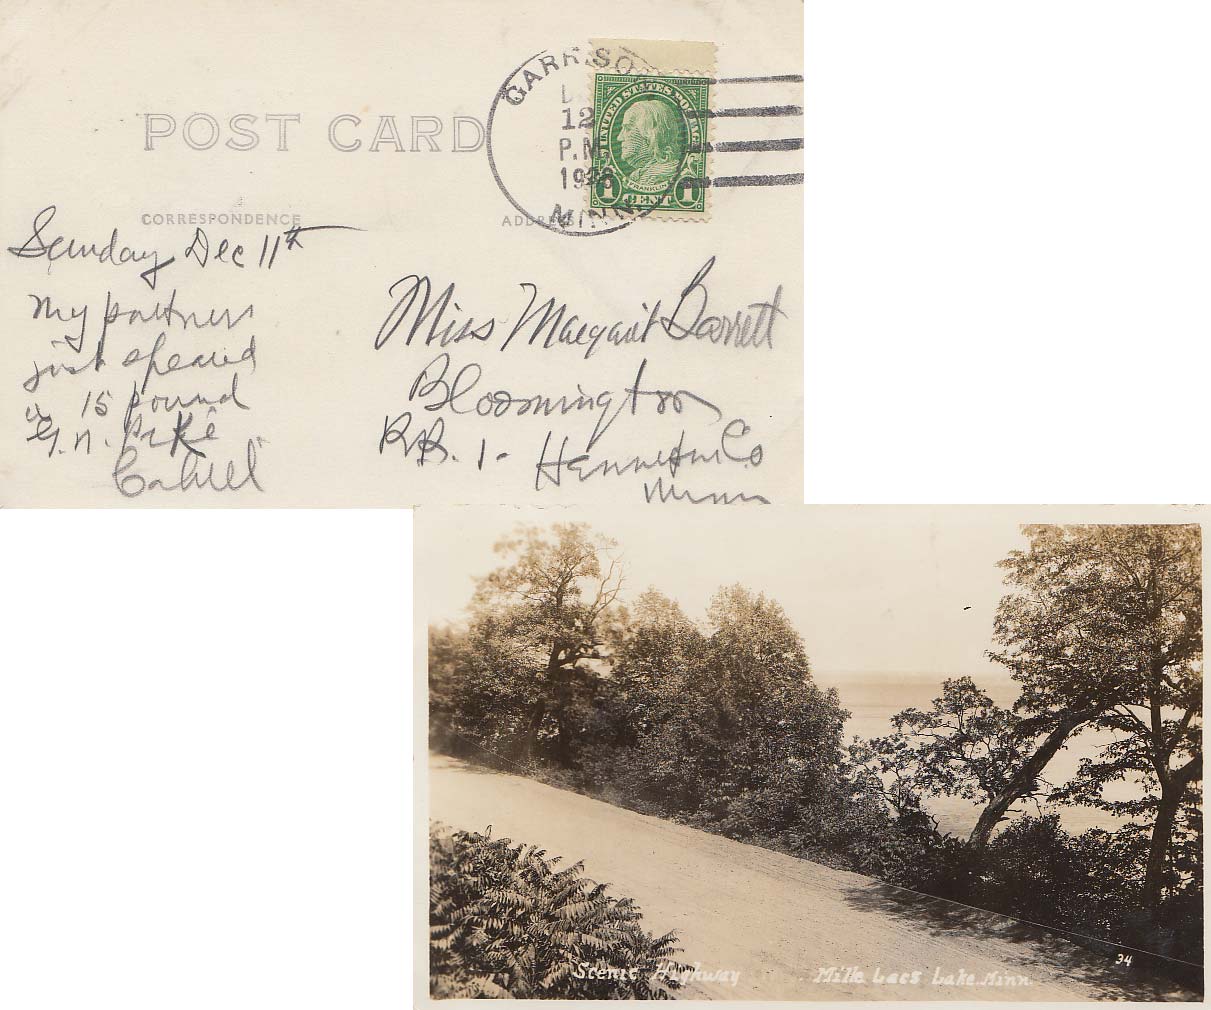 POST CARD
GARRISON
12
P.M.
MINN.
UNITED STATES POSTAGE
FRANKLIN
1 CENT 1
CORRESPONDENCE
ADDRESS
Sunday Dec 11th
My partners
just speared
a 15 pound
G.N. pike
Cahill
Miss Margaret Barrett
Bloomington
RR. 1- Hennepin Co
Minn
34
Scenic Highway Mille Lacs Lake. Minn.